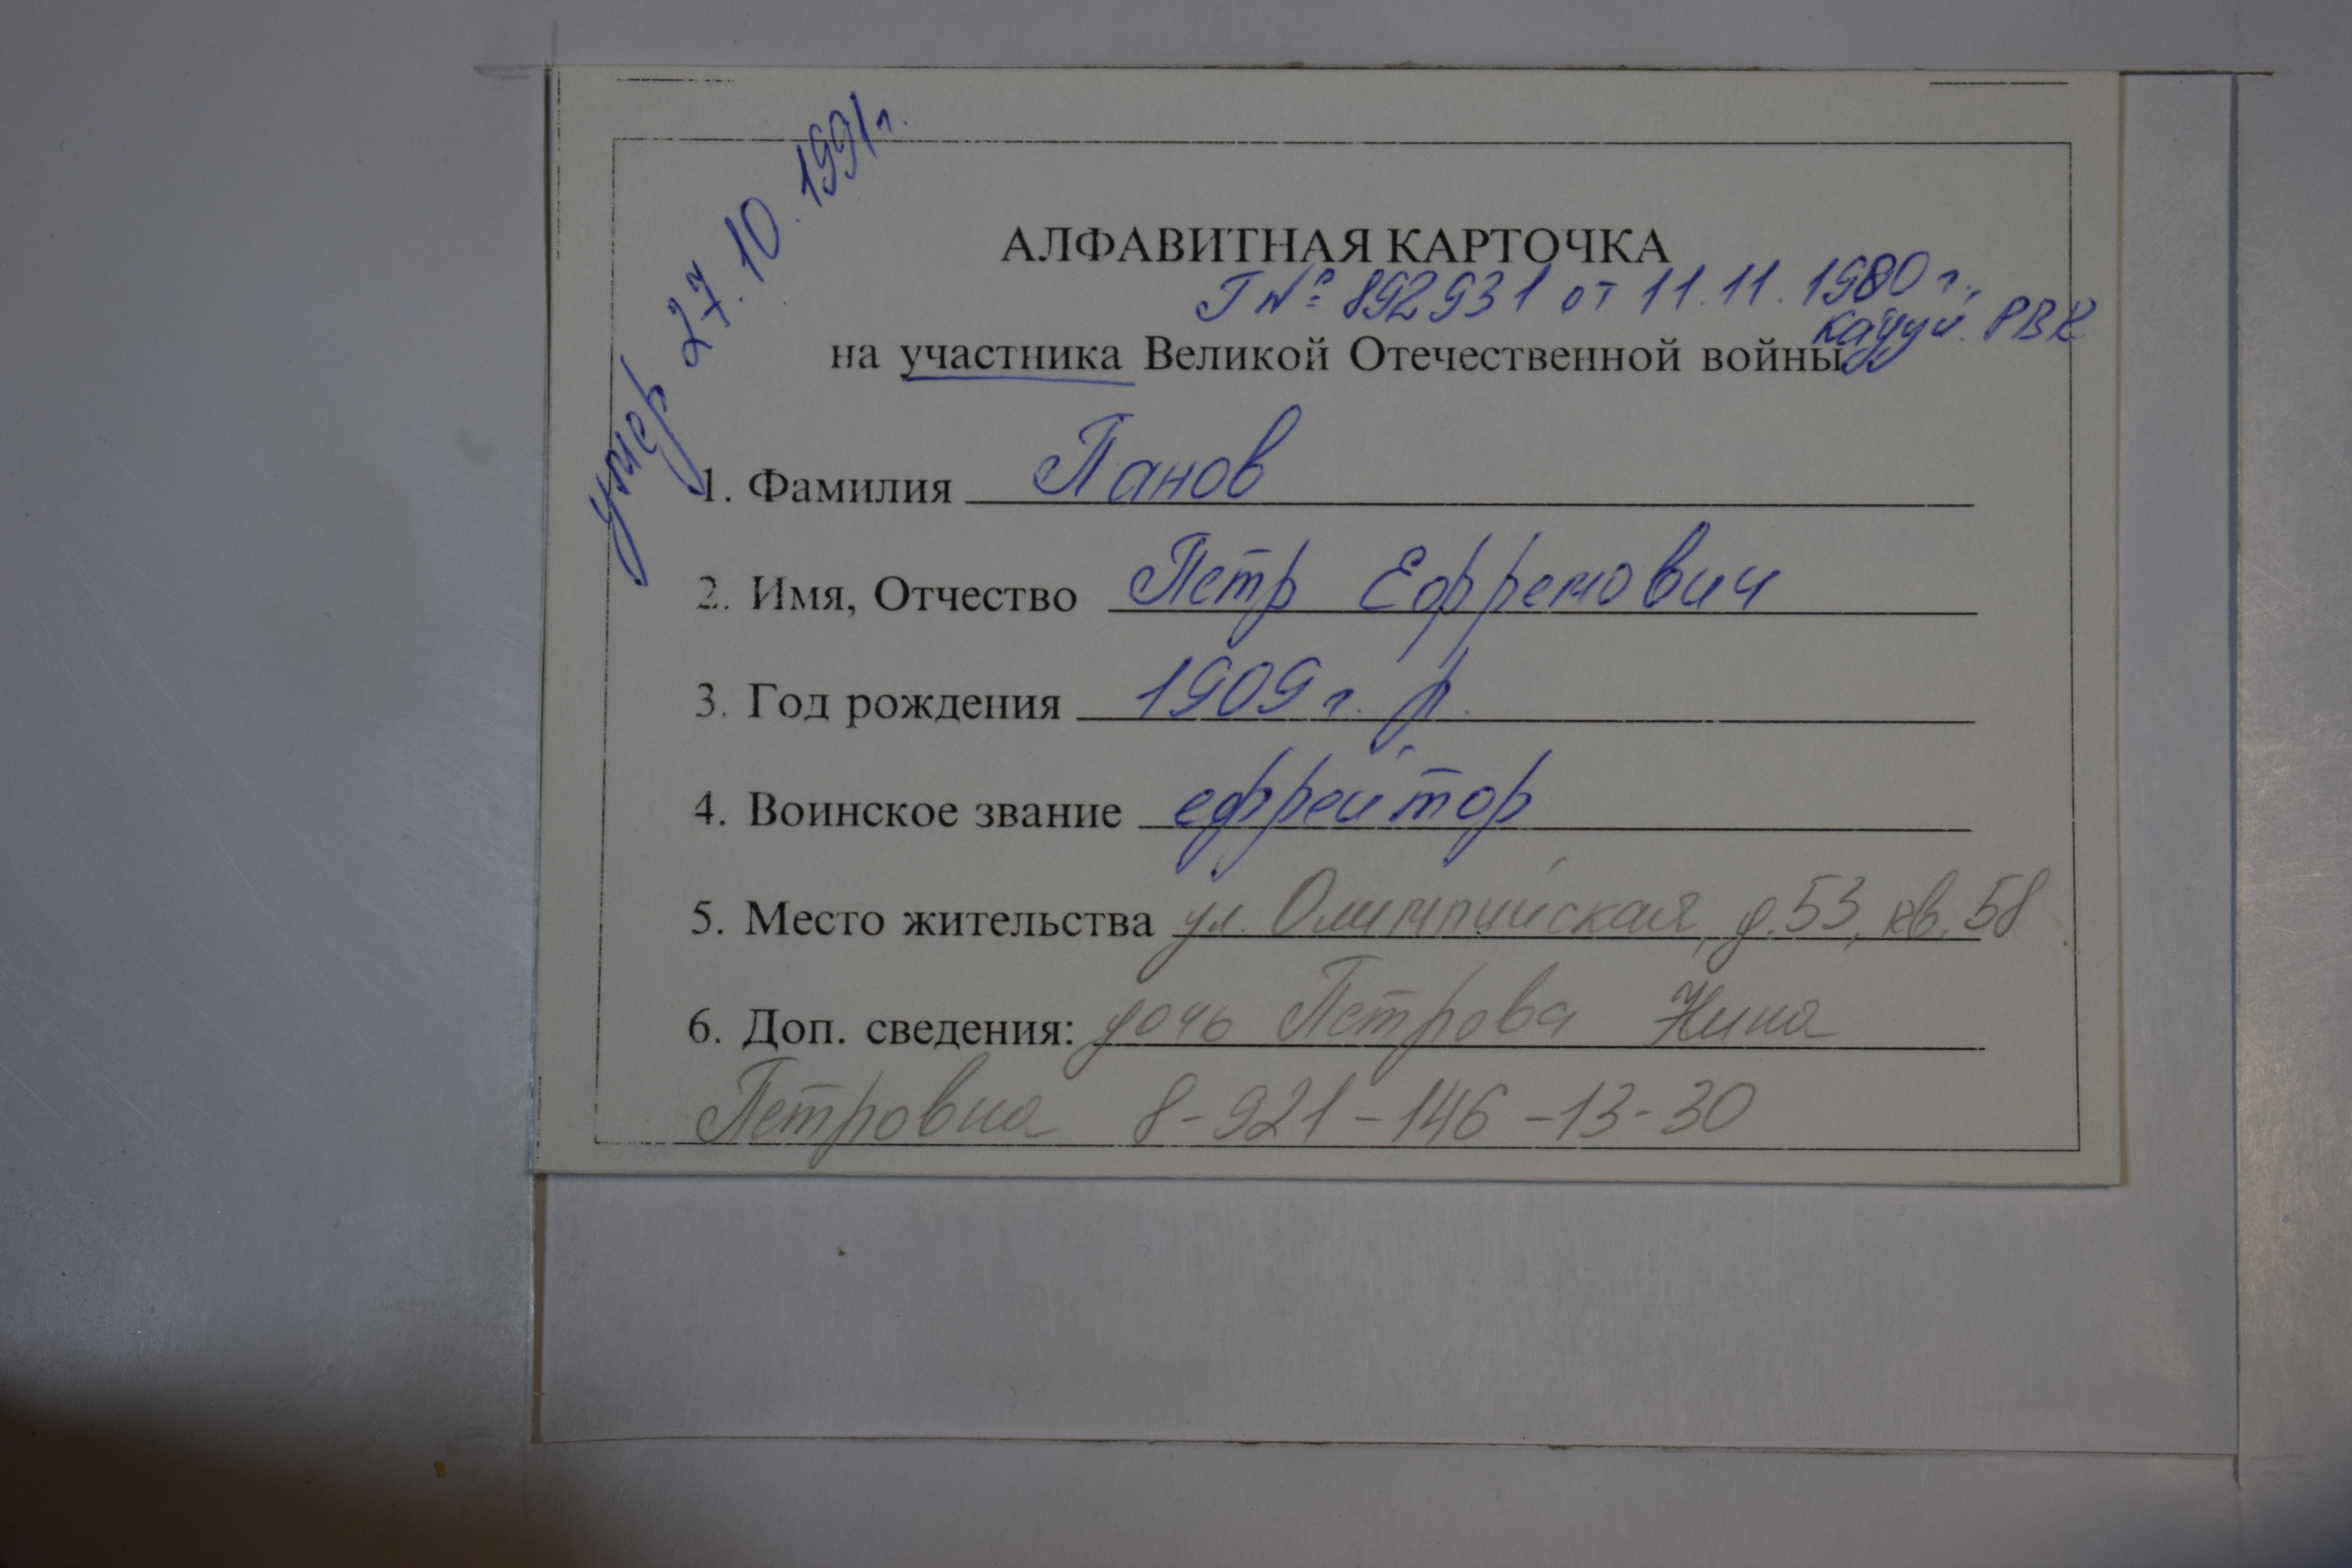 умер 27.10.1991г.
АЛФАВИТНАЯ КАРТОЧКА
Г № 892931 от 11.11.1980 г.,
Кадуй. РВК
на участника Великой Отечественной войны
1. Фамилия Панов
2. Имя, Отчество Петр Ефремович
3. Год рождения 1909 г. р.
4. Воинское звание ефрейтор
5. Место жительства ул. Олимпийская, д.53, кв.58
6. Доп. сведения: дочь Петрова Нина
Петровна 8-921-146-13-30